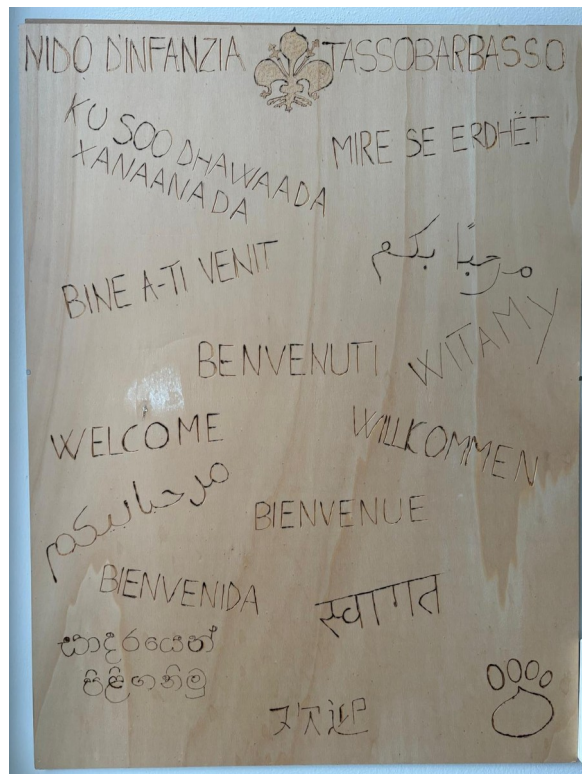 NIDO D'INFANZIA TASSOBARBASSO
KU SOO DHAWAADA
XANAANADA
MIRE SE ERDHËT
BINE A-TI VENIT
مرحبًا بكم
BENVENUTI
WITAMY
WELCOME
WILLKOMMEN
مرحبا بكم
BIENVENUE
BIENVENIDA
स्वागत
සාදරයෙන්
පිළිගනිමු
欢迎